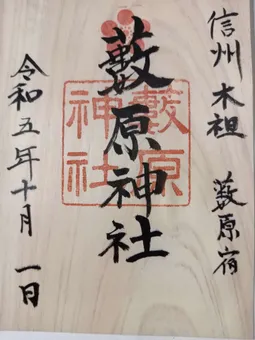 信州 木祖 薮原宿
薮原神社
薮原神社
令和五年十月一日